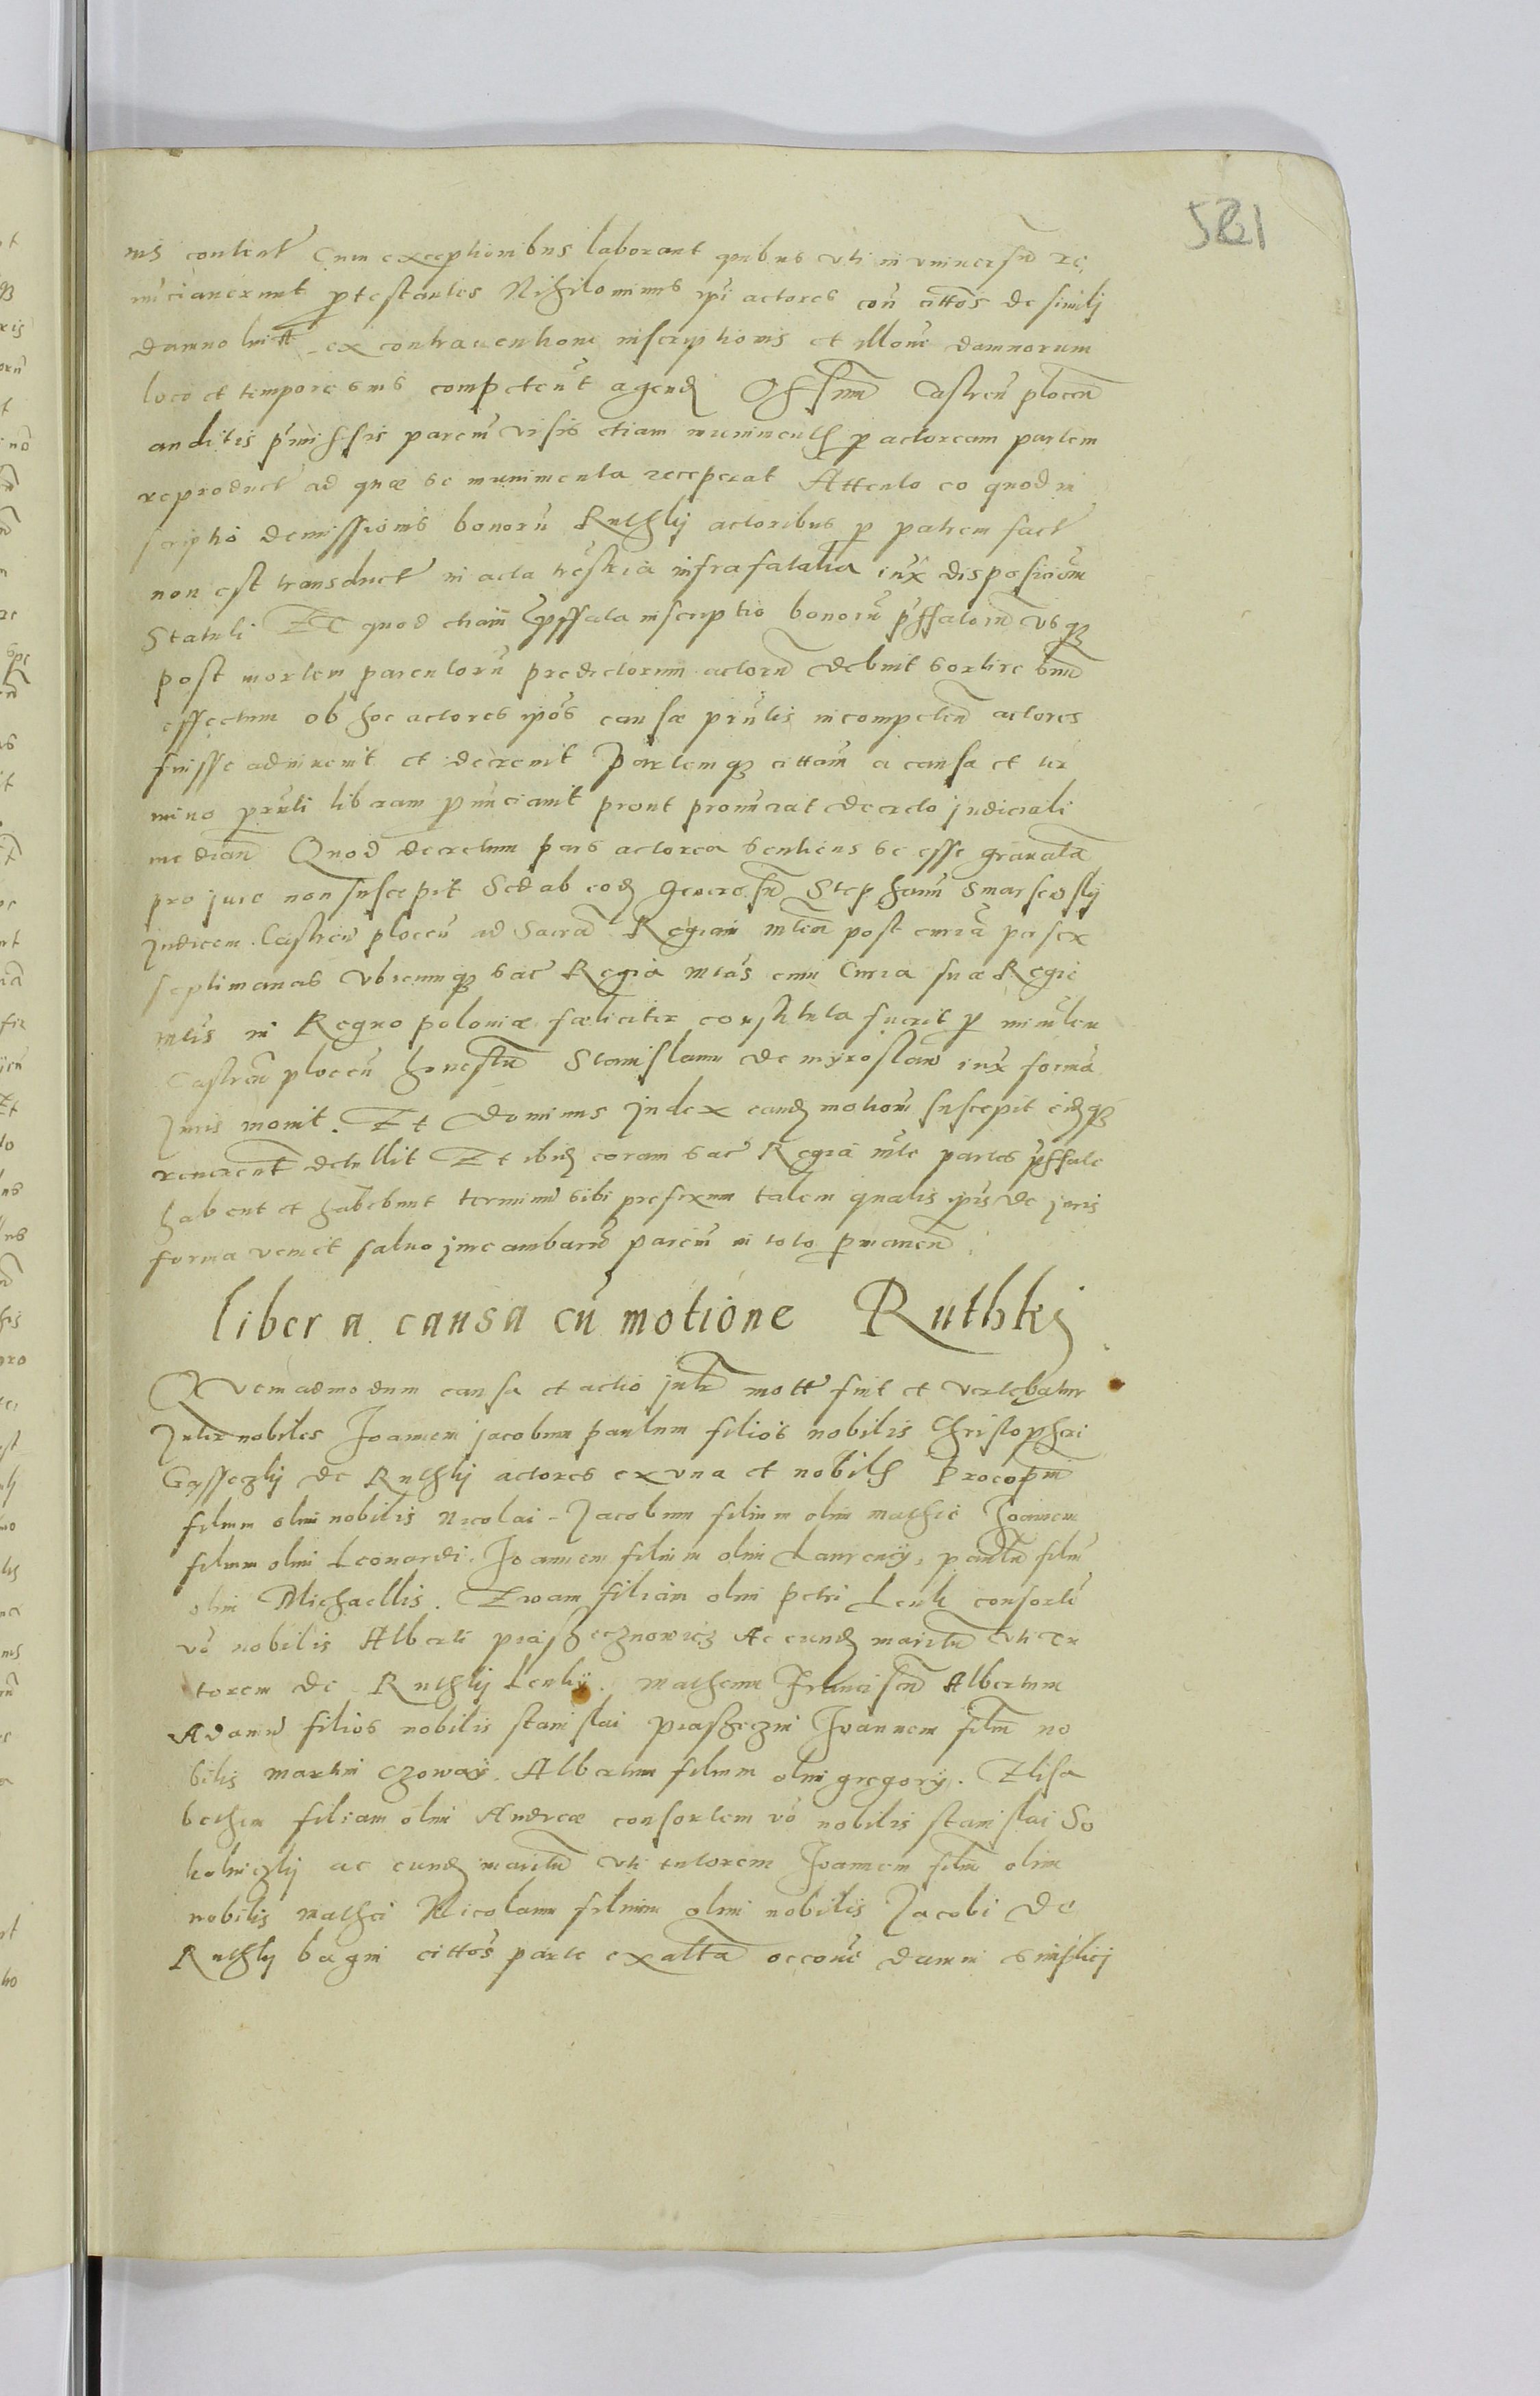 581
nis content Cum exceptionibus laborant quibus vti in vniuersū re
nūciauerunt ptestantes Nihilominus ipi actores con cittos de simili
damno luit ex contrauentione inscriptionis et illone damnorum
loco et tempore suis competent agend Offium Castren plocen
auditis pmissis parcm visis etiam munimentis p actoream partem
reproduct ad quæ se munimenta receperat Attento eo quod in
scriptio demissionis bonorū Ruthkj actoribus p patrem fact
non est transduct in acta trestria infra fatalia iux disposicionem
Statuti Et quod etiam pffata inscriptio bonorū pffatorū vsq
post mortem parentorū predictorum actorū debuit sortire suū
effectum ob hoc actores ipos causæ pntis incompeten actores
fuisse adinuenit et decreuit Partemq cittam a causa et ter
mino pnti liberam pnunciauit prout pronuciat decreto judiciali
median Quod decretum pars actorea sentiens se esse grauatā
pro jure non suscepit Sed ab eod Generosū Stephanū Smarscoskj
judicem Castren plocen ad Sacrā Regiam mtem post curiā per sex
septimanas vbicumq Sac Regia mtas cum Curia sua Regie
mtis in Regno poloniæ fæliciter constituta fuerit p ministem
Castren plocen honestū Stanislaum de myroslaw iux formā
Juris mouit. Et Dominus Judex eand motionē suscepit eidq
reuerent detullit Et ibid coram Sac Regia mte partes pffate
habent et habebunt terminū sibi prefixum talem qualis ipis de juris
forma venit saluo jure ambarū parcm in toto pmanen
libera causa cū motione Ruthkj
Quemadmodum causa et actio jntr mott fuit et vertebatur
Inter nobiles Joannem jacobum paulum filios nobilis Christopheri
Gasseczkj de Ruthkj actores ex vna et nobiles Procopiū
filium olim nobilis Nicolai Jacobum filium olim mathie Joannem
filium olim Leonardi Joannem filium olim Laurencij, paulū filiū
olim Michaellis. Ewam filiam olim petri Lenk consortē
vo nobilis Alberti piashecznowicz Ac eund maritū vti tu
torem de Ruthkj Lenkij. Matheum Franciscū Albertum
Adamū filios nobilis stanislai piasheczni Joannem filiū no
bilis martini czoway. Albertum filium olim gregorij. Elisa
betham filiam olim Andreæ consortem vo nobilis stanislai So
kolniczkj ac eund maritū vti tutorem Joannem filiū olim
nobilis mathei Nicolaum filium olim nobilis Jacobi de
Ruthkj bagni cittos parte ex altā occone damni simplicij